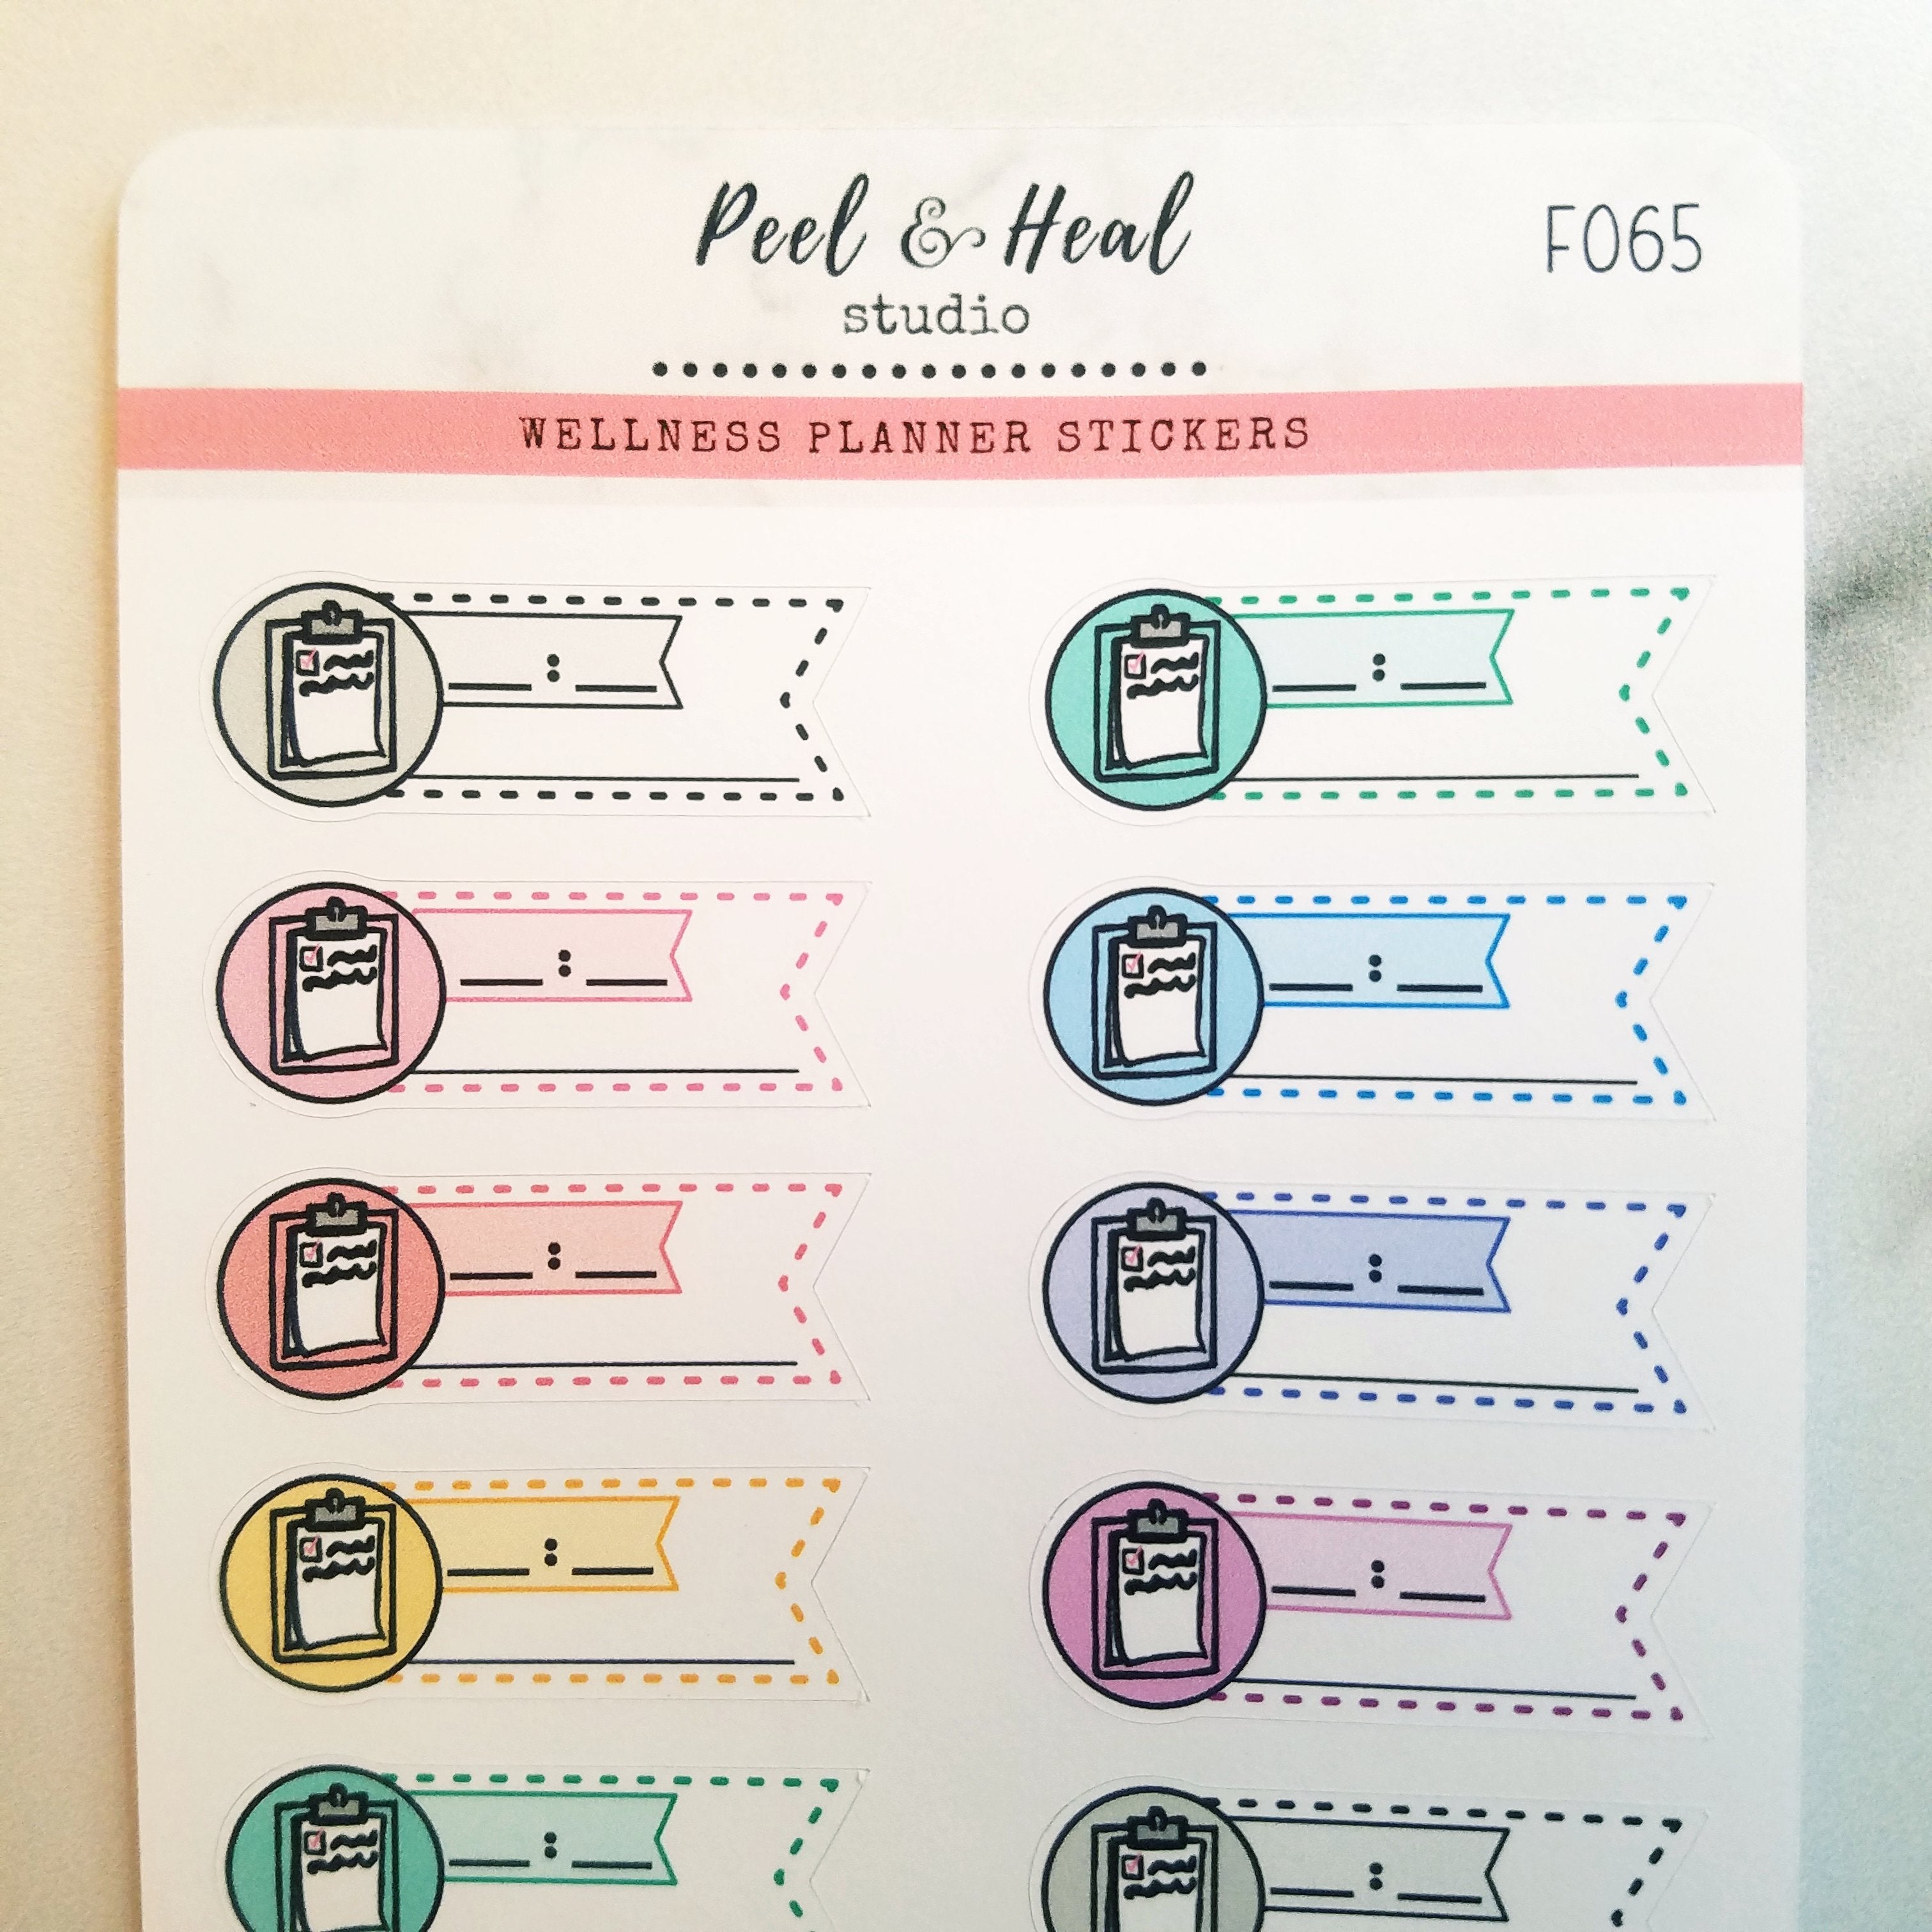 Peel & Heal
F065
studio
WELLNESS PLANNER STICKERS